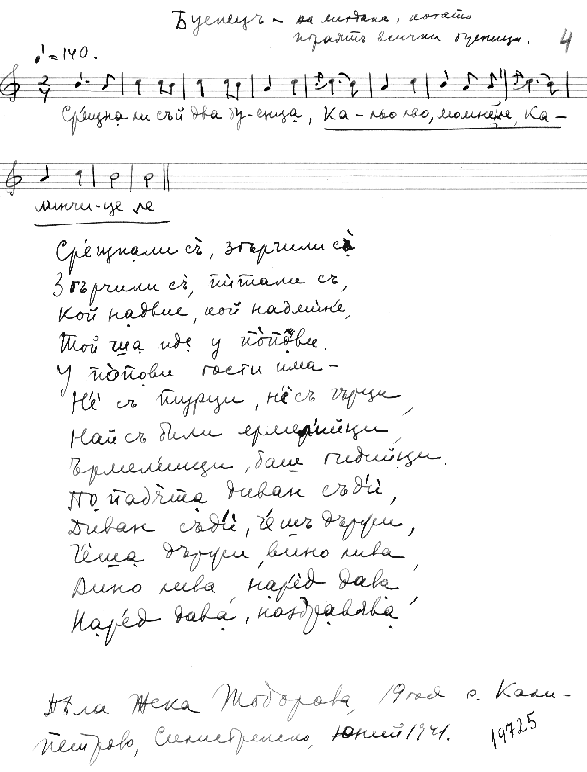 Буенецъ – на мегдана, когато
играятъ всички буенци. 4
♩=140.
2/4
Срѐщна ли съй два бу-енца, Ка-льо льо, момнѐле, Ка-
линчи-це ле
Срѐщнали съ, збърчили съ
Збърчили съ, питали съ,
Кой надвие, кой надмине,
Той ща иде у попови.
У попови гости има –
Нѐ съ турци, нѐ съ гърци,
Най съ били ермелийци,
Ърмелийци, баш гидийци.
По падѐта диван седи,
Диван седи, чѐшъ държи,
Чѐша държи, вино лива,
Вино лива, нарѐд дава,
Нарѐд дава, поздравява
Пѣла Жека Тодорова, 19 год. с. Кали-
петрово, Силистренско, Юний 1941.
19725